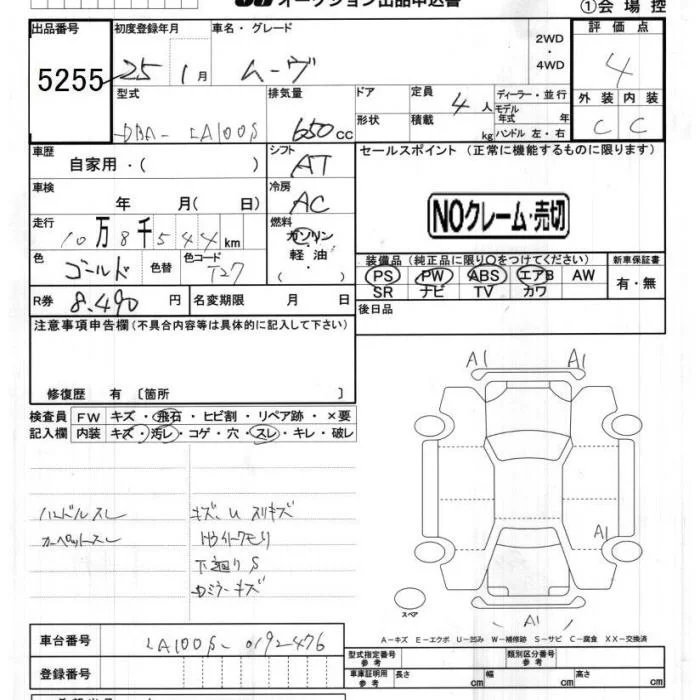 オークション出品申込書
①会場控
出品番号 初度登録年月 車名・グレード 2WD・4WD 評価点
5255 25 1月 ムーヴ 4
型式 排気量 ドア 定員 4人 ディーラー・並行 外装 内装
DBA- LA100S 650cc 形状 積載 kg モデル年式 年 ハンドル 左・右 C C
車歴 自家用・( ) シフト AT セールスポイント (正常に機能するものに限ります)
車検 年 月( 日) 冷房 AC
NOクレーム・売切
走行 10万8千544km 燃料 ガソリン・軽油・( )
色 ゴールド 色替 色コード T27
装備品 (純正品に限り○をつけてください) 新車保証書
PS PW ABS エアB AW 有・無
SR ナビ TV カワ
R券 8,490円 名変期限 月 日 後日品
注意事項申告欄(不具合内容等は具体的に記入して下さい)
修復歴 有 〔箇所 〕
検査員 FW キズ・飛石・ヒビ割・リペア跡・×要
記入欄 内装 キズ・汚レ・コゲ・穴・スレ・キレ・破レ
ハンドルスレ キズ、U スリキズ
カーペットスレ
下廻りS
Dミラーキズ
A1 A1
A1
A1
スペア
A-キズ E-エクボ U-凹み W-補修跡 S-サビ C-腐食 XX-交換済
車台番号 LA100S-0192476
型式指定番号 参考 類別区分番号 参考
登録番号 車庫証明用 参考 長さ cm 幅 cm 高さ cm